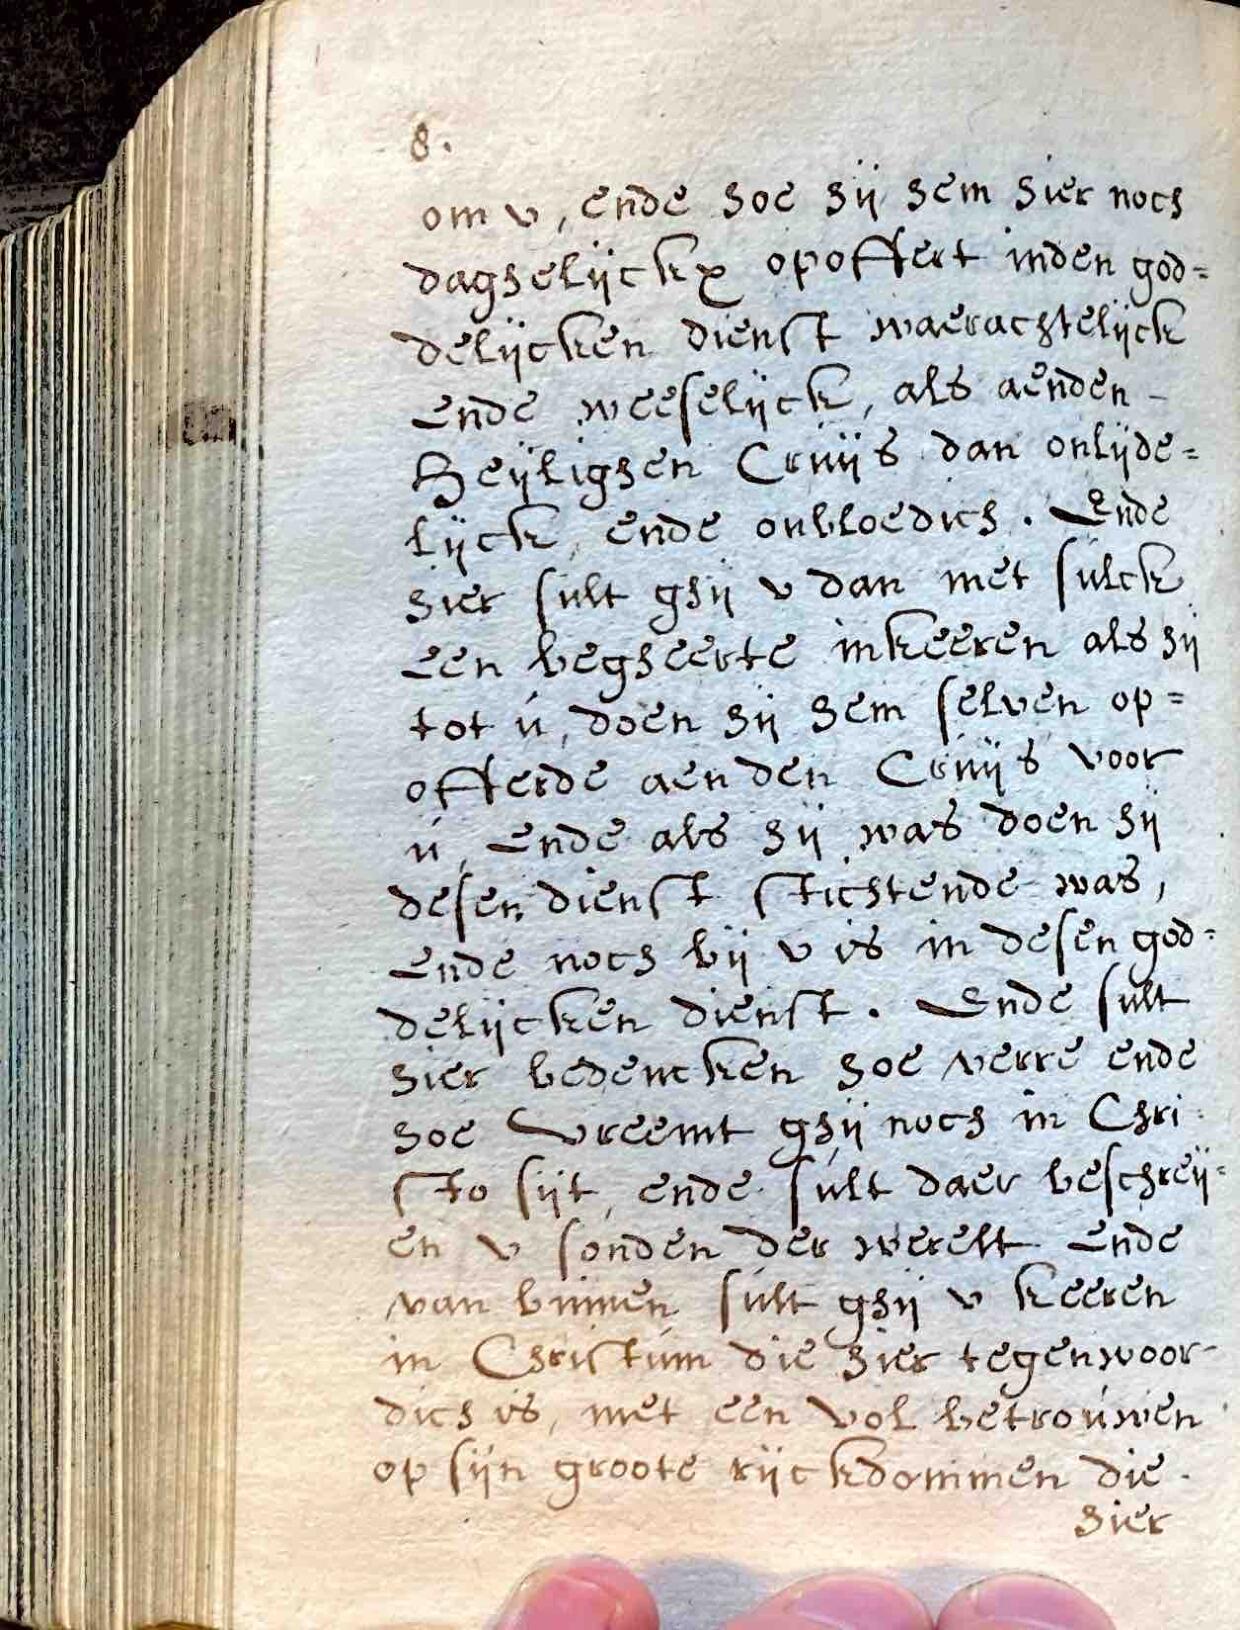 8.
om v, ende hoe hij hem hier noch
daghelijckx opoffert inden god=
delijcken dienst waerachtelijck
ende weeselijck, als aenden -
Heijlighen Cruijs dan onlijde=
lijck, ende onbloedich. Ende
hier sult ghij v dan met sulck
een begheerte inkeeren als hij
tot ú, doen hij hem selven op=
offerde aen den Cruijs voor
ú, ende als hij was doen hij
desen dienst stichtende was,
ende noch bij v is in desen god=
delijcken dienst. Ende sult
hier bedencken hoe verre ende
hoe vreemt ghij noch in Chri-
sto sijt, ende sult daer beschreij=
en v sonden der werelt ende
van binnen sult ghij v keeren
in Christum die hier tegenwoor-
dich is, met een vol betrouwen
op sijn groote rijckdommen die -
hier